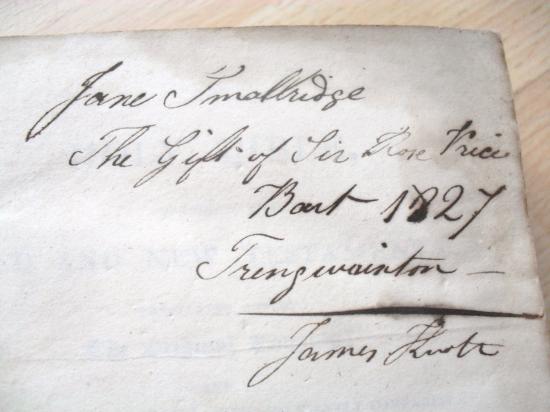 Jane Smallridge
The Gift of Sir Rose Price
Bart 1827
Trengwainton —
James Knott